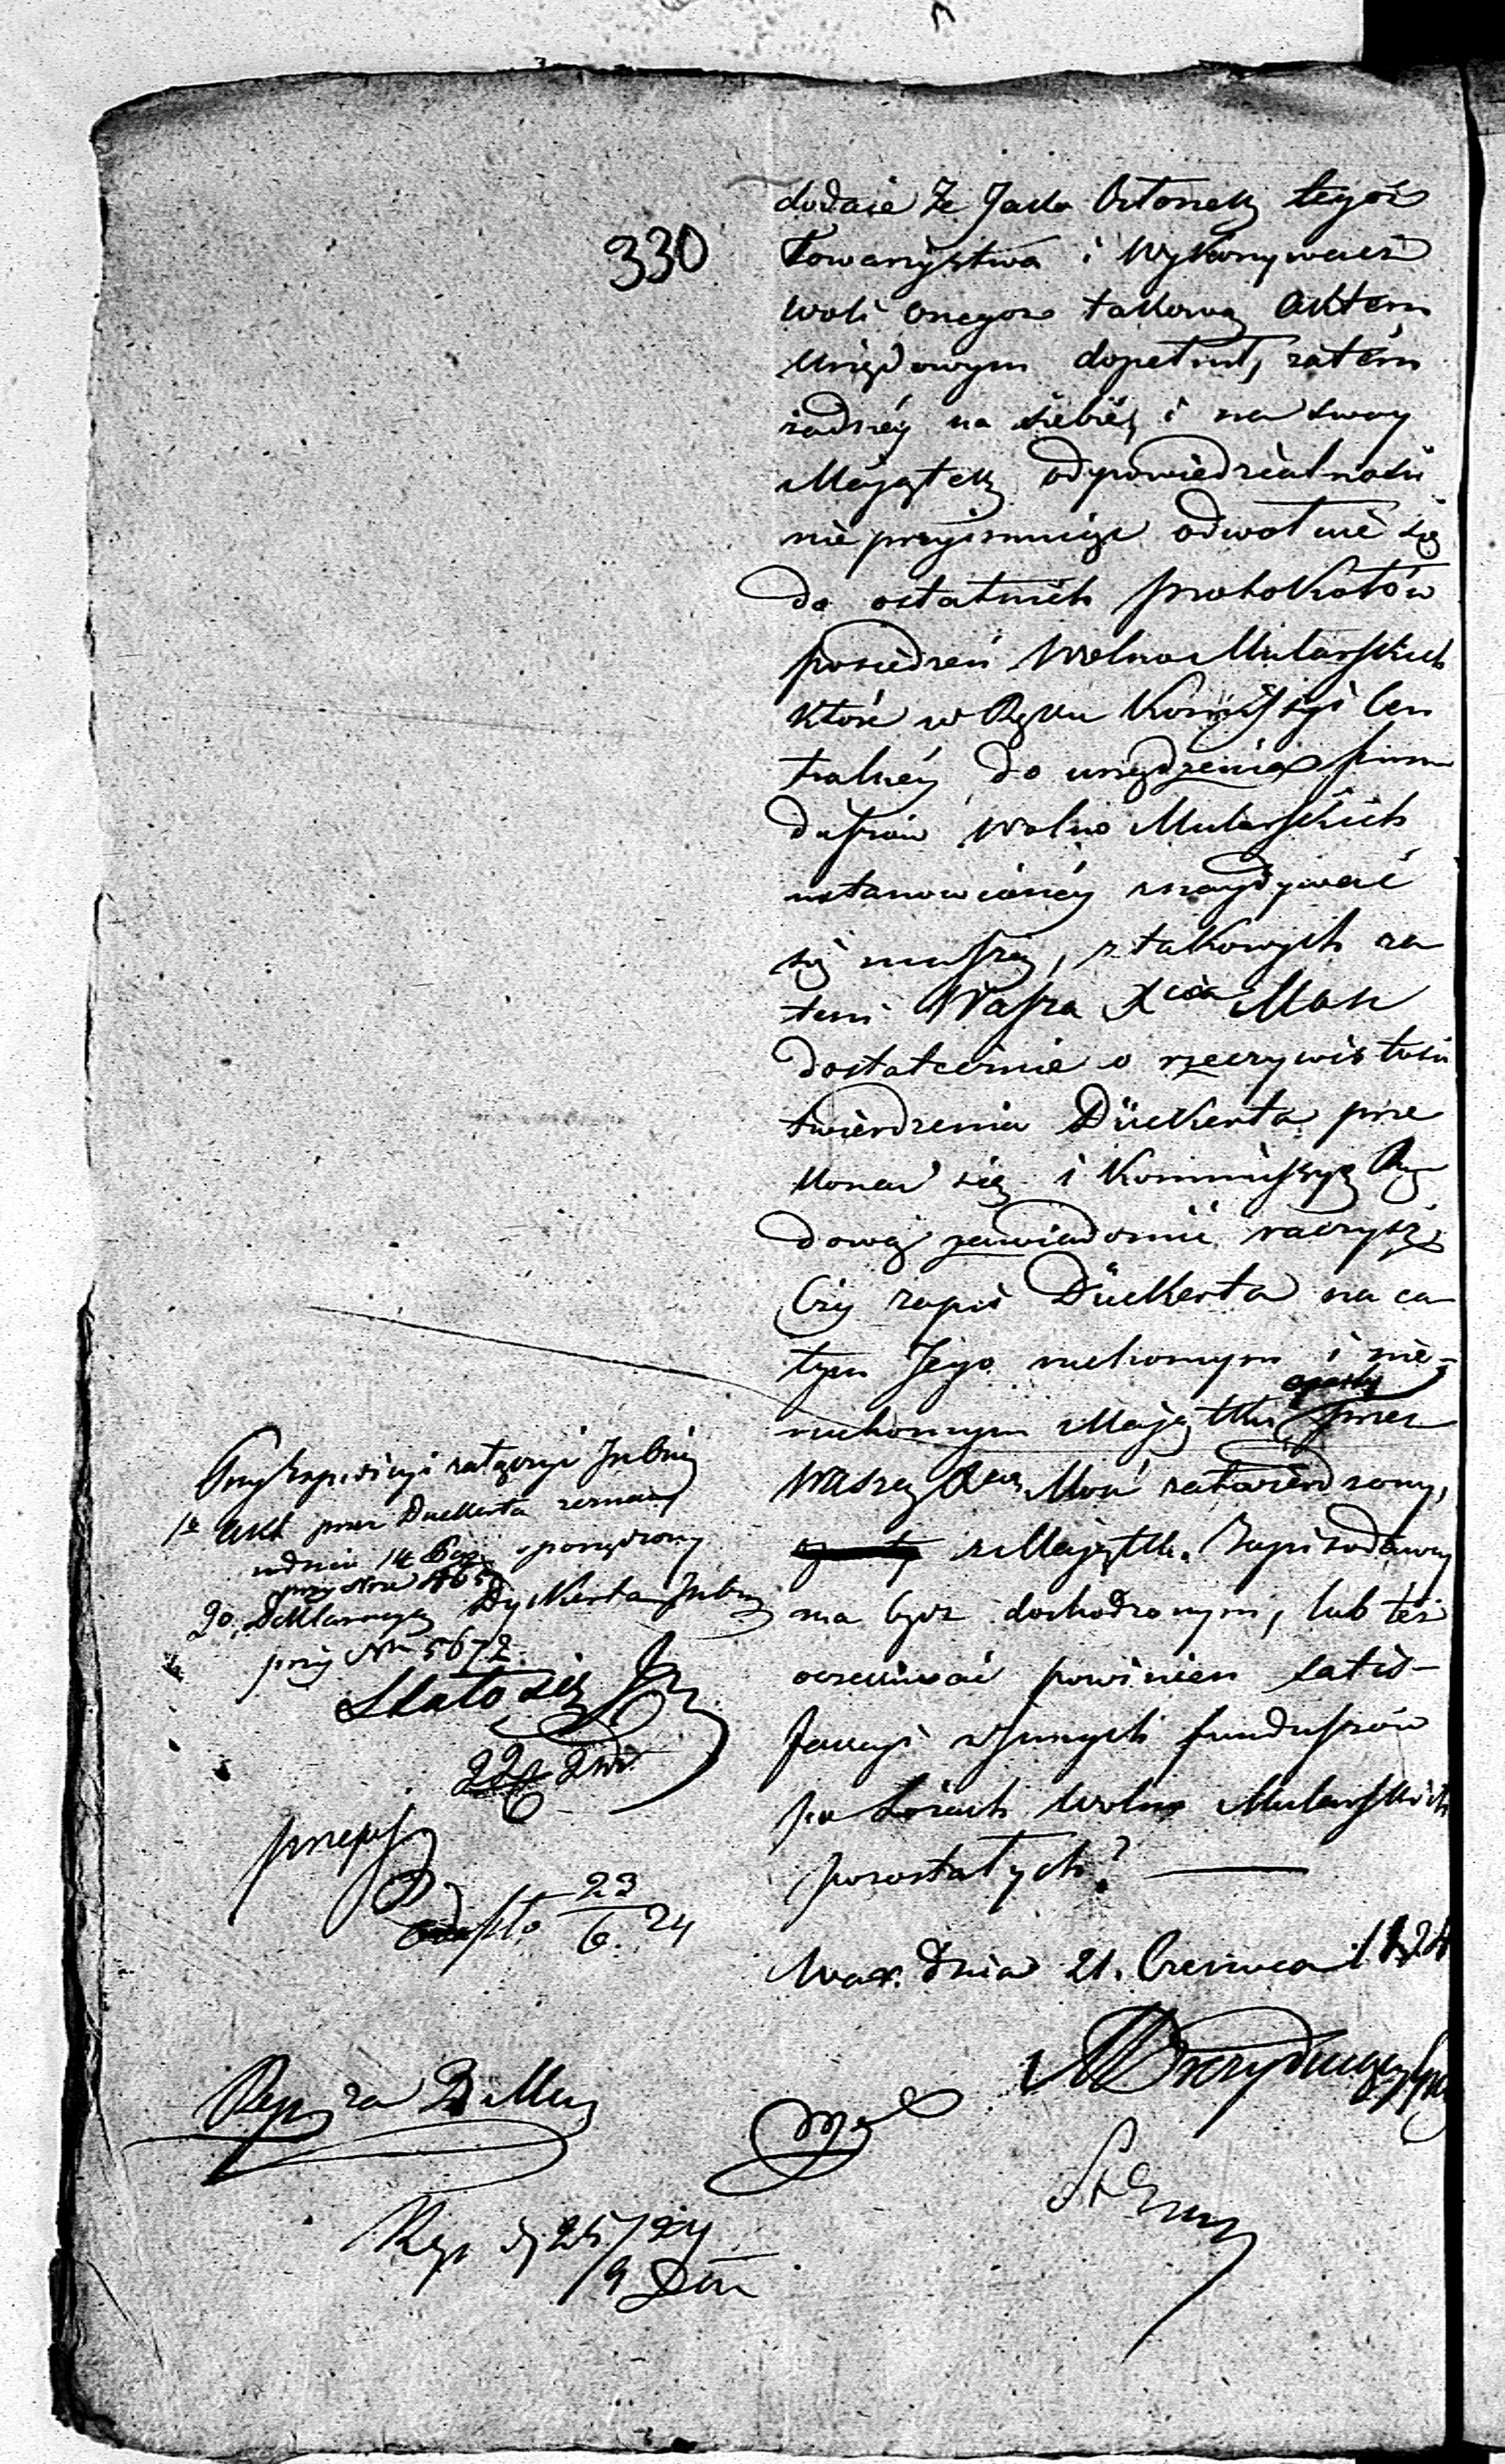 330
dodaie że Jako Członek tegoż
Towarzystwa i Wykonywacz
woli onegoż takową Aktem
urzędowym dopełnił, zatém
żadnéy na siebie i na swoy
Maiątek odpowiedzialności
nie przyimuiąc odwołuie się
do ostatnich protokołów
posiedzeń Wolno Mularskich
które w Ręku Kommissyi Cen
tralnéy do urządzenia fun
duszów Wolno Mularskich
ustanowionéy znaydywać
się muszą, z takowych za
tem Wasza Xcia Mość
dostatecznie o rzeczywistości
twierdzenia Dückerta prze
konać się i Kommissyą Rzą
dową zawiadomić raczysz,
Czy zapis Dückerta na ca
łym Jego ruchomym i nie-
ruchomym Maiątku oparty przez
Waszą Xcą Mość zatwierdzony,
z Maiątku Zapisodawcy
ma bydz dochodzonym, lub też
oczekiwać powinien satis-
fakcyi z innych funduszów
po Lożach Wolno Mularskich
pozostałych?
War. dnia 21. Czerwca 1824
Przy Expedycyi załączyć Jnbię
1o Akt przez Duckerta zeznany
w dniu 14
przy Nrze
2o. Deklaracyą Dyckerta Jnbię
przy Nr 5672.
22/6
przep
23/6. 24
Rep za
25/24